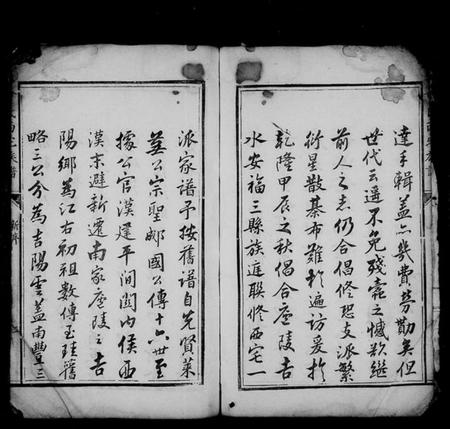 達手輯蓋亦幾費勞勩矣但
世代云遥不免殘蠧之憾欲繼
前人之志仍合倡修恐支派繁
衍星散綦布難於遍访爰於
乾隆甲辰之秋倡合庐陵吉
水安福三縣族庭联修西宅一
派家譜予按舊谱自先賢萊
蕪公宗聖郕國公傳十六世至
據公官漢建平間關内侯西
漢末避新遷南家庐陵之吉
陽鄉為江右初祖數傳至珪舊
略三公分為吉陽雲蓋南豐三